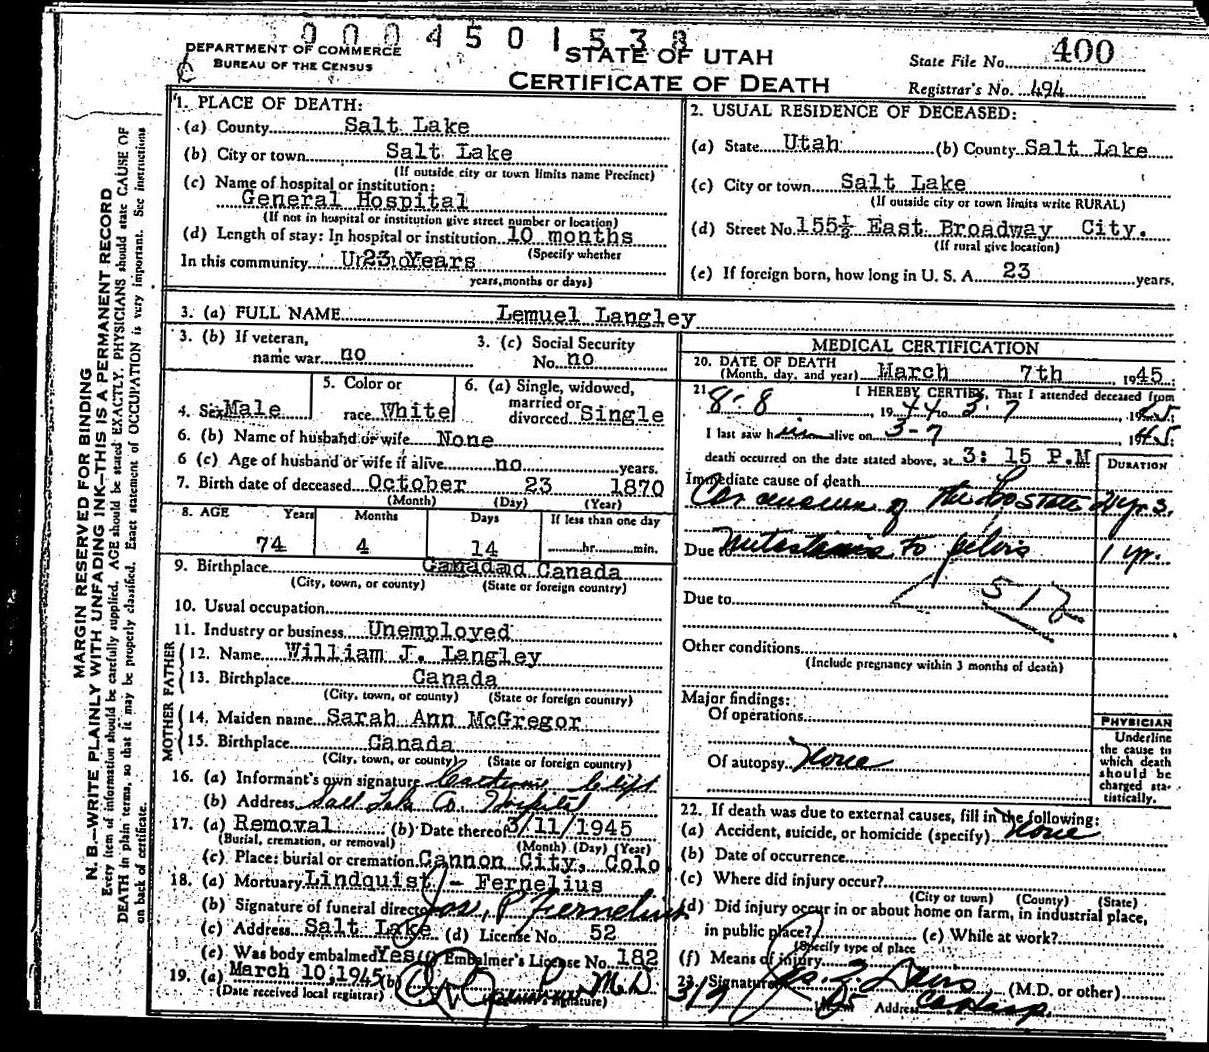 0004501538
DEPARTMENT OF COMMERCE
BUREAU OF THE CENSUS
STATE OF UTAH
CERTIFICATE OF DEATH
State File No. 400
Registrar's No. 494
MARGIN RESERVED FOR BINDING
N. B.—WRITE PLAINLY WITH UNFADING INK—THIS IS A PERMANENT RECORD
Every item of information should be carefully supplied. AGE should be stated EXACTLY. PHYSICIANS should state CAUSE OF
DEATH in plain terms, so that it may be properly classified. Exact statement of OCCUPATION is very important. See instructions
on back of certificate.
1. PLACE OF DEATH:
(a) County Salt Lake
(b) City or town Salt Lake
(If outside city or town limits name Precinct)
(c) Name of hospital or institution:
General Hospital
(If not in hospital or institution give street number or location)
(d) Length of stay: In hospital or institution 10 months
(Specify whether
In this community 23 Years
years, months or days)
2. USUAL RESIDENCE OF DECEASED:
(a) State Utah (b) County Salt Lake
(c) City or town Salt Lake
(If outside city or town limits write RURAL)
(d) Street No. 155½ East Broadway City.
(If rural give location)
(e) If foreign born, how long in U. S. A. 23 years.
3. (a) FULL NAME Lemuel Langley
3. (b) If veteran, name war no
3. (c) Social Security No. no
4. Sex Male
5. Color or race White
6. (a) Single, widowed, married or divorced Single
6. (b) Name of husband or wife None
6 (c) Age of husband or wife if alive no years.
7. Birth date of deceased October 23 1870
(Month) (Day) (Year)
8. AGE Years Months Days If less than one day
74 4 14 hr. min.
9. Birthplace Canada
(City, town, or county) (State or foreign country)
10. Usual occupation
11. Industry or business Unemployed
FATHER
12. Name William J. Langley
13. Birthplace Canada
(City, town, or county) (State or foreign country)
MOTHER
14. Maiden name Sarah Ann McGregor
15. Birthplace Canada
(City, town, or county) (State or foreign country)
16. (a) Informant's own signature
(b) Address Salt Lake Co. Hospital
17. (a) Removal (b) Date thereof 3/11/1945
(Burial, cremation, or removal) (Month) (Day) (Year)
(c) Place: burial or cremation Cannon City, Colo
18. (a) Mortuary Lindquist - Fernelius
(b) Signature of funeral director Jos. P Fernelius
(c) Address Salt Lake (d) License No. 52
(e) Was body embalmed Yes (f) Embalmer's License No. 182
19. (a) March 10, 1945 (b) M.D
(Date received local registrar) signature)
MEDICAL CERTIFICATION
20. DATE OF DEATH
(Month, day, and year) March 7th 1945
21 I HEREBY CERTIFY, That I attended deceased from
8-8 1944 to 3-7 1945:
I last saw him alive on 3-7 1945:
death occurred on the date stated above, at 3: 15 P.M
DURATION
Immediate cause of death
Carcinoma of the Prostate 2 yrs.
Due to Metastasis to pelvis 1 yr.
Due to
Other conditions
(Include pregnancy within 3 months of death)
Major findings:
Of operations
Of autopsy None
PHYSICIAN
Underline
the cause to
which death
should be
charged sta-
tistically.
22. If death was due to external causes, fill in the following:
(a) Accident, suicide, or homicide (specify) None
(b) Date of occurrence
(c) Where did injury occur?
(City or town) (County) (State)
(d) Did injury occur in or about home on farm, in industrial place,
in public place? (e) While at work?
(Specify type of place
(f) Means of injury
23. Signature (M.D. or other)
3/7 45 Address Co Hosp.